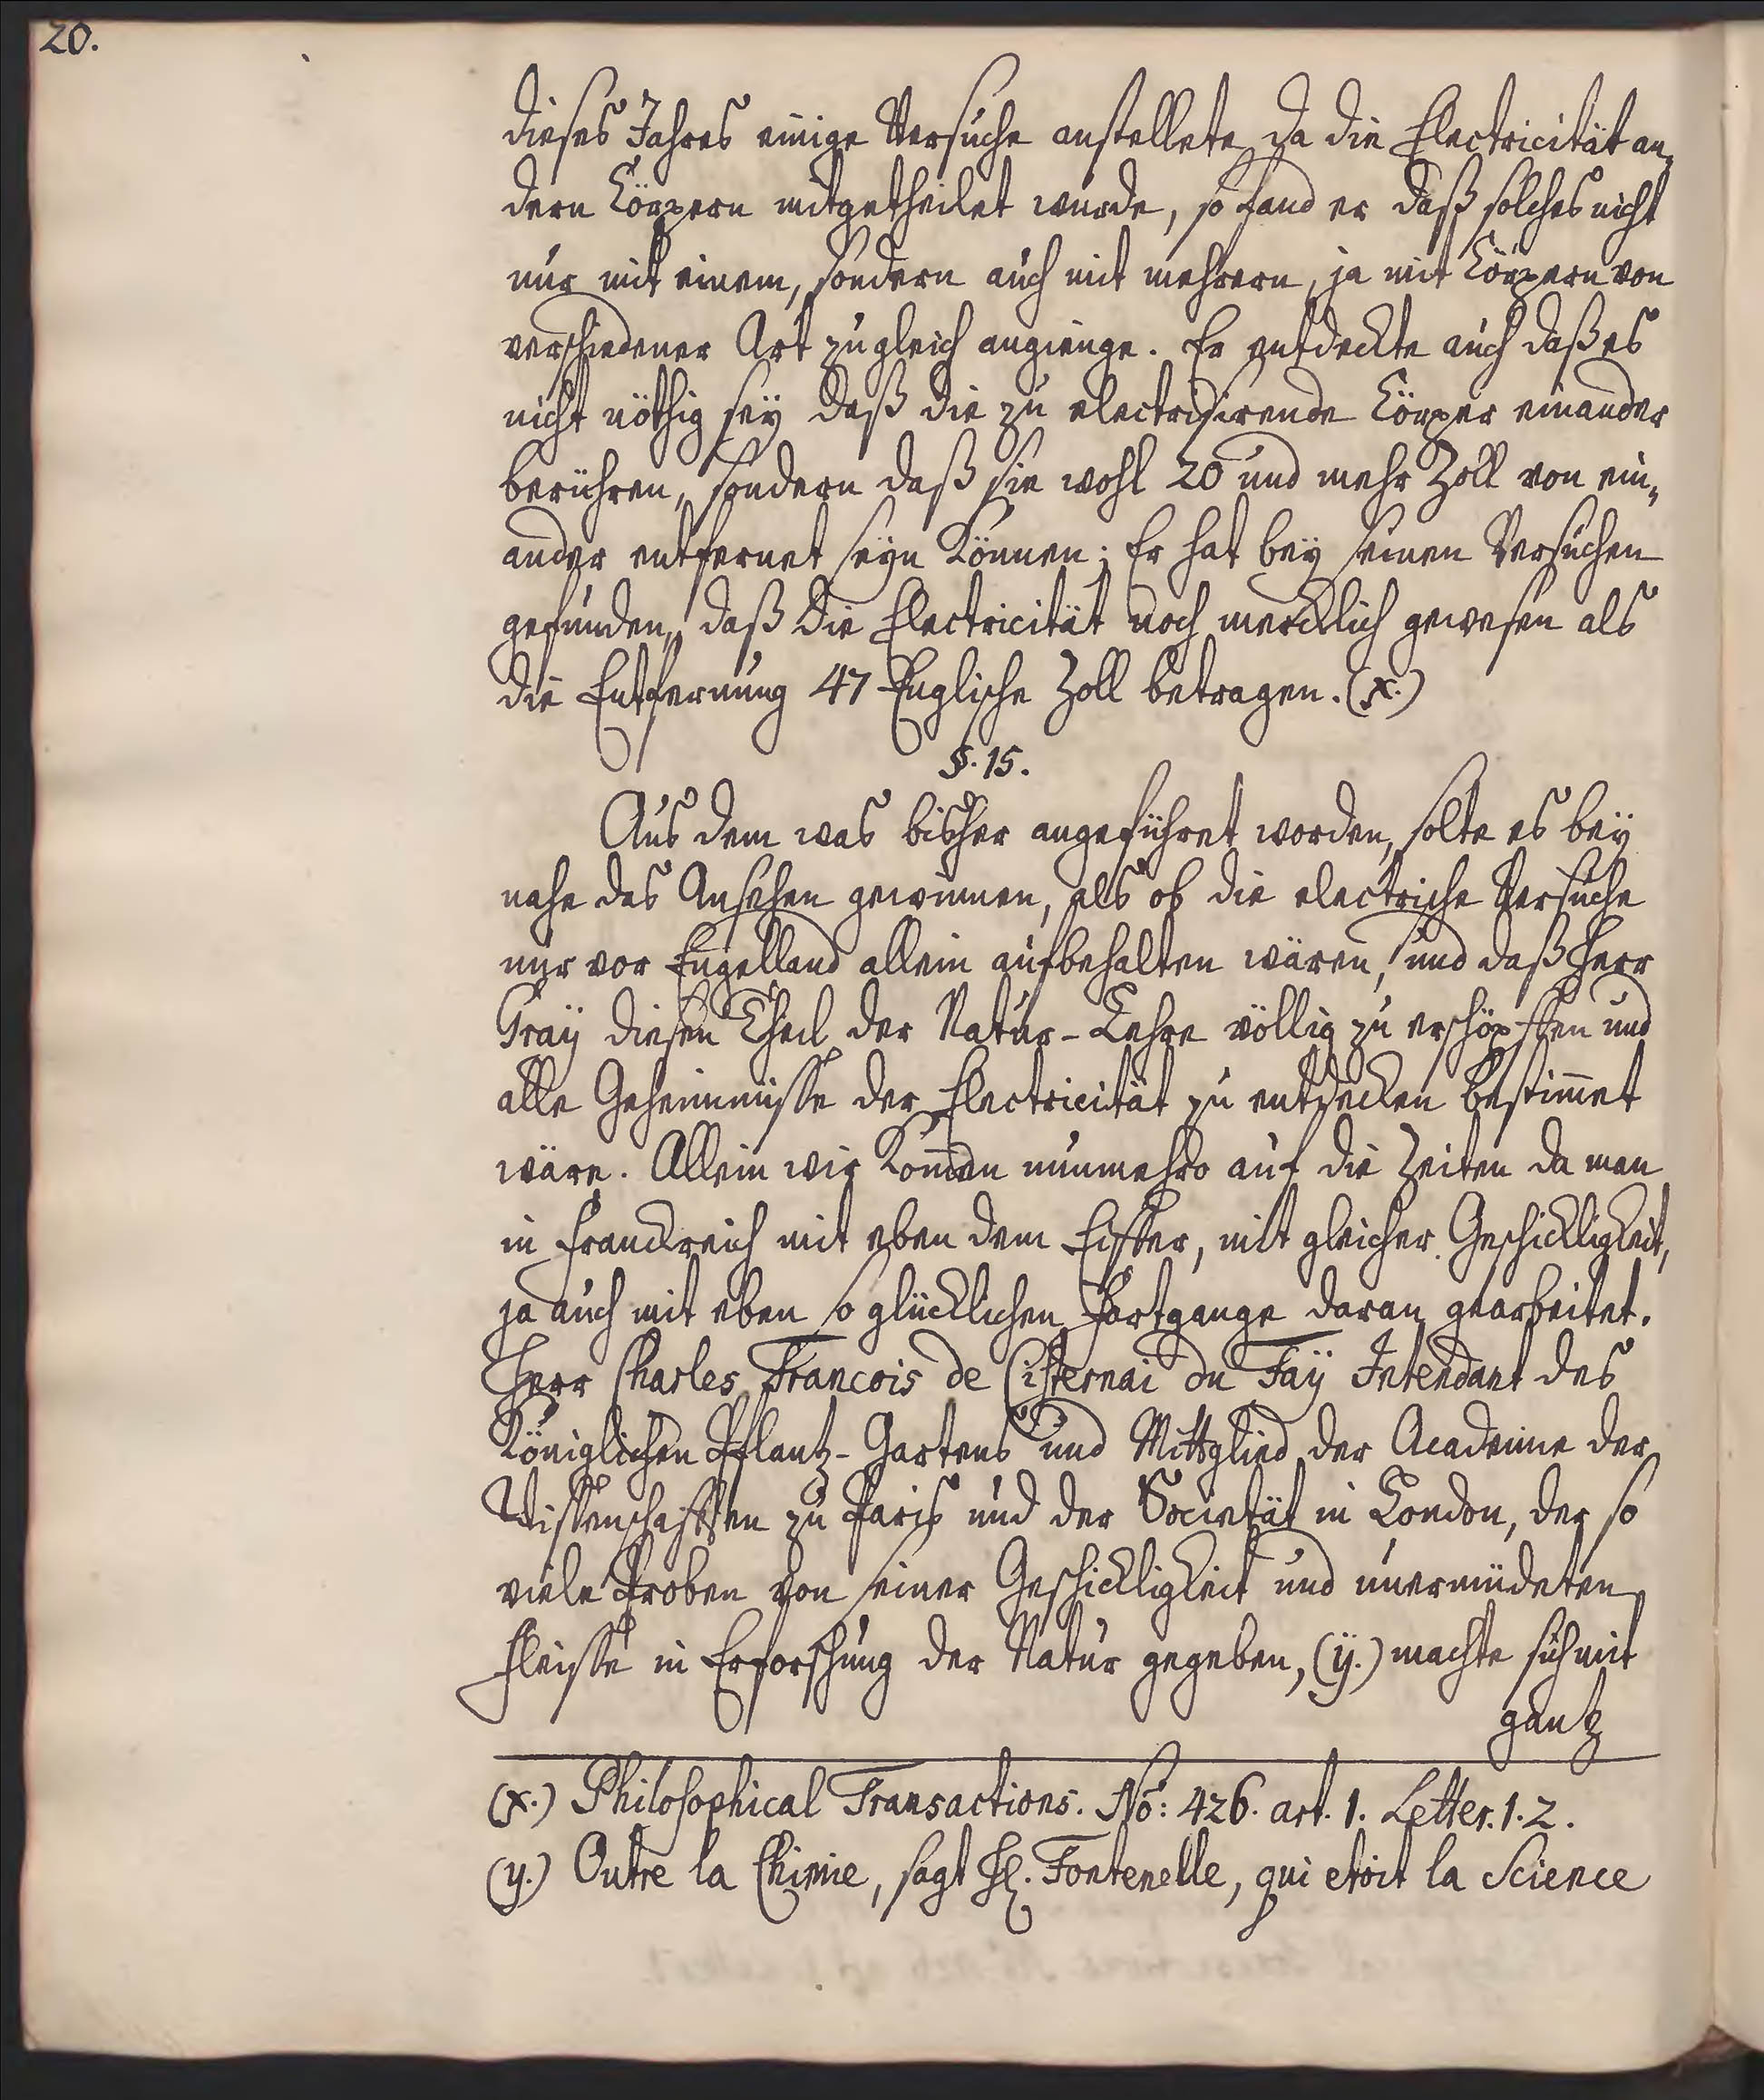 20.
dieses Jahres einige Versuche anstellete da die Electricität an„
dern Cörpern mitgetheilet wurde, so fand er daß solches nicht
nur mit einem, sondern auch mit mehrern, ja mit Cörpern von
verschiedener Art zugleich angienge. Er entdeckte auch daß es
nicht nöthig seÿ daß die zu electrisirende Cörper einander
berühren, sondern daß sie wohl 20 und mehr Zoll von ein„
ander entfernet seÿn können; Er hat beÿ seinen Versuchen
gefunden, daß die Electricität noch mercklich gewesen als
die Entfernung 47 Englische Zoll betragen. (x.)
§. 15.
Aus dem was bisher angeführet worden, solte es beÿ
nahe das Ansehen gewinnen, als ob die electriche Versuche
nur vor Engelland allein aufbehalten wären, und daß Herr
Graÿ diesen Theil der Natur-Lehre völlig zu erschöpffen und
alle Geheimnisse der Electricität zu entdecken bestim̄et
wäre. Allein wir kom̄en nunmehro auf die Zeiten da man
in Franckreich mit eben dem Eiffer, mit gleicher Geschickligkeit,
ja auch mit eben so glücklichen Fortgange daran gearbeitet.
Herr Charles Francois de Cisternai du Faÿ Intendant des
Königlichen Pflantz-Gartens und Mittglied der Academie der
Wissenschafften zu Paris und der Societät in London, der so
viele Proben von seiner Geschickligkeit und unermüdeten
Fleisse in Erforschung der Natur gegeben, (ÿ.) machte sich mit
gantz
(x.) Philosophical Transactions. No: 426. art. 1. Letter. 1. 2.
(y.) Outre la Chimie, sagt H. Fontenelle, qui etoit la Science